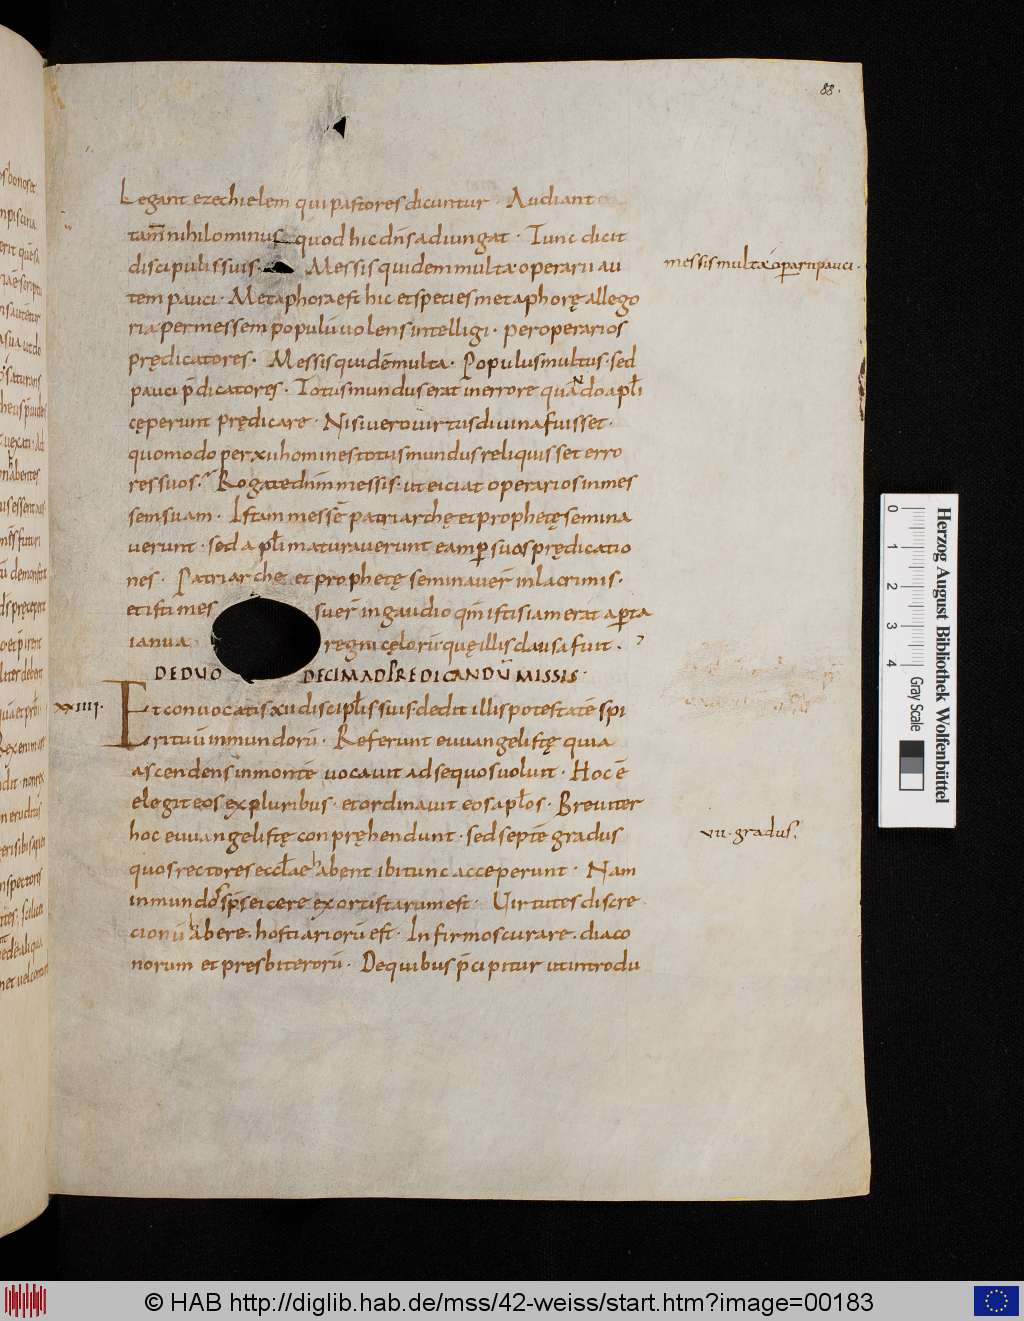 88.
Legant ezechielem qui pastores dicuntur · Audiant
tam̅ nihilominus quod hic dn̅s adiungat · Tunc dicit
discipulis suis · Messis quidem multa · operarii au
messis multa · operarii pauci ·
tem pauci · Metaphora est hic et species metaphorę allego
ria per messem populū uolens intelligi · per operarios
prędicatores · Messis quidē multa · Populus multus · sed
pauci p̄dicatores · Totus mundus erat in errore quando apl̄i
cęperunt prędicare · Nisi uero uirtus diuina fuisset ·
quomodo per xii homines totus mundus reliquisset erro
res suos · Rogate dn̄m messis · ut eiciat operarios in mes
sem suam · Istam messē patriarchę et prophetę semina
uerunt · sed apl̄i maturauerunt eam per suas prędicatio
nes · Patriarche et prophetę seminauer̄ in lacrimis ·
et isti mes suer̄ in gaudio qm̄ istis iam erat aperta
ianua regni cęlorū quę illis clausa fuit ·
DE DUO DECIM AD PREDICANDŪ MISSIS ·
xxiiii · Et conuocatis xii discipl̄is suis dedit illis potestatē spi
rituū inmundorū · Referunt euuangelistę quia
ascendens in montē uocauit ad se quos uoluit · Hoc ē
elegit eos ex pluribus · et ordinauit eos apl̄os · Breuiter
hoc euuangelistę conpręhendunt · sed septē gradus
vii · gradus
quos rectores eccl̄ae habent ibi tunc acceperunt · Nam
inmundos sps̄ eicere exorcistarum est · Uirtutes discre
cionū habere · hostiariorū est · Infirmos curare · diaco
norum et presbiterorū · De quibus p̄cipitur ut introdu
0 1 2 3 4
Gray Scale
Herzog August Bibliothek Wolfenbüttel
© HAB http://diglib.hab.de/mss/42-weiss/start.htm?image=00183